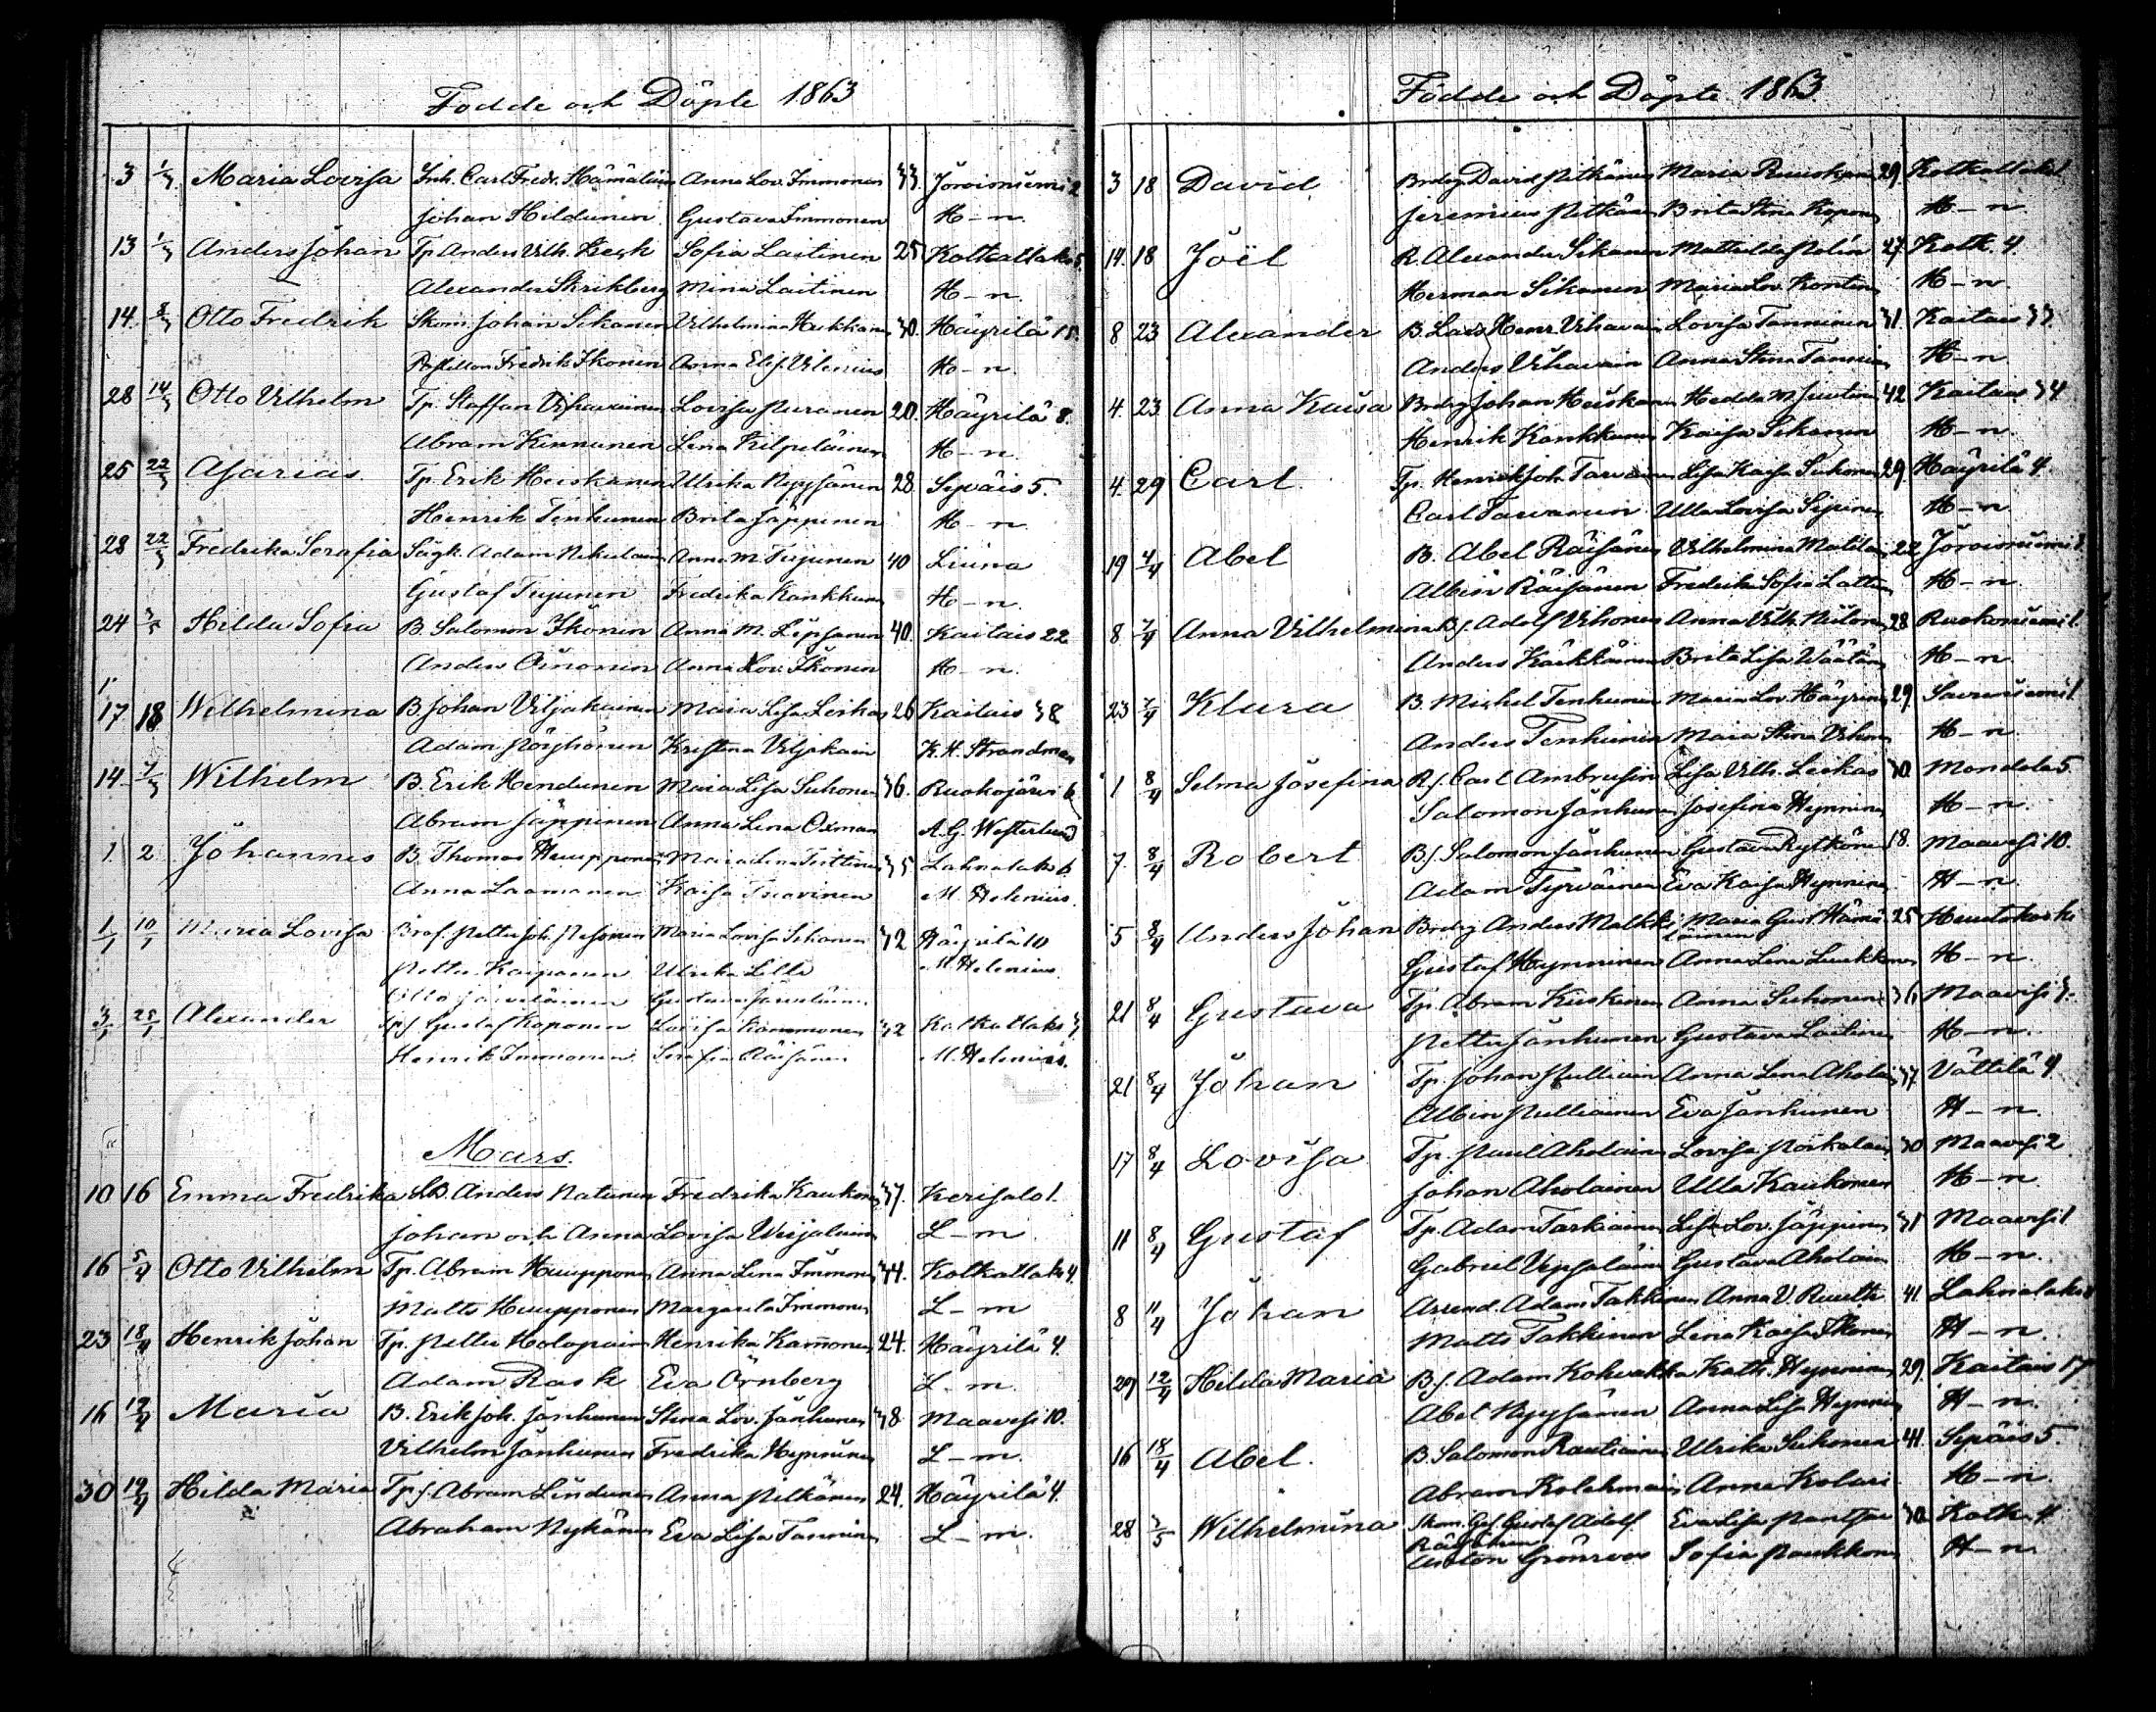 Födde och Döpte 1863
3 1/3 Maria Lovisa Inh. Carl Fredr. Hämäläin Anna Lov. Immonen 33. Joroisniemi 2
Johan Hildunen Gustava Immonen H-n.
13 1/3 Anders Johan Tp. Anders Vilh. Kesk Sofia Laitinen 25 Kolkatlaks 5.
Alexander Skrikberg Mina Laitinen H-n.
14. 8/3 Otto Fredrik Skom. Johan Sikanen Vilhelmina Hukkanen 30. Häyrilä 15.
Fredrik Ikonen Anna Elis. Vilenius H-n.
28 14/3 Otto Vilhelm Tp. Staffan Vihavainen Lovisa Puranen 20. Häyrilä 8.
Abram Kinnunen Lena Kilpeläinen H-n.
25 22/3 Asarias Tp. Erik Heiskanen Ulrika Nyyssönen 28. Sepäis 5.
Henrik Tenhunen Brita Jäppinen H-n
28 22/3 Fredrika Serafia Sågk. Adam Nikulainen Anna M. Tiejunen 40 Liuna
Gustaf Tiejunen Fredrika Kankkunen H-n.
24 3/5 Hilda Sofia B. Salomon Ikonen Anna M. Lipsanen 40. Kaitais 22
Anders Oinonen Anna Lov. Ikonen H-n.
17 18 Wilhelmina B. Johan Viljakainen Maria Lisa Leikas 26 Kaitais 38
Adam Pöyhönen Kristina Viljakain K. H. Strandman
14. 7/3 Wilhelm B. Erik Hendunen Maria Lisa Suhonen 36. Ruokojärvi 6
Abram Jäppinen Anna Lena Oxman A. G. Westerlund
1. 2 Johannes B. Thomas Huupponen Maria Lena Tiittinen 35 Lahnalaks 6.
Anna Laamanen Kaisa Tuovinen M. Helenius.
1/1 10/1 Maria Lovisa Petter Joh. Pesonen Maria Lovisa Sihvonen 32 Häyrilä 10
Petter Kaipainen Ulrika Lille M. Helenius.
Otto Järveläinen Gustava Järveläin.
3/1 25/1 Alexander Gustaf Koponen Lovisa Kammonen 32 Kolkatlaks 3
Henrik Immonen Serafia Räisänen M. Helenius.
Mars.
10 16 Emma Fredrika Anders Natunen Fredrika Kaukonen 37. Kerisalo 1.
Johan och Anna Lovisa Weijalain L-m
16 5/4 Otto Vilhelm Tp. Abram Huupponen Anna Lena Immonen 44. Kolkatlaks 4.
Matts Huupponen Margareta Immonen L-m
23 18/4 Henrik Johan Tp. Petter Holopainen Henrika Kammonen 24. Häyrilä 4.
Adam Rask Eva Örnberg L-m.
16 19/4 Maria B. Erik Joh. Jänhunen Stina Lov. Jänhunen 38 Maavesi 10.
Vilhelm Jänhunen Fredrika Hynninen L-m.
30 19/4 Hilda Maria Tp.s. Abram Lindunen Anna Pitkänen 24. Häyrilä 4.
Abraham Nykänen Eva Lisa Tanninen L-m.
Födde och Döpte 1863.
3 18 David Brdeg David Pitkänen Maria Ruuskanen 29. Kolkatlaks 1
Jeremias Pitkänen Brita Stina Koponen H-n.
14. 18 Joël R. Alexander Sikanen Mathilda Polén 27. Kolk. 4.
Herman Sikanen Maria Lov. Kontin H-n.
8 23 Alexander B. Lars Henr. Vihavain Lovisa Tanninen 31. Kaitais 33.
Anders Vihavain Anna Stina Tannin H-n
4. 23 Anna Kaisa Brdeg Johan Heiskanen Hedda M. Justin 42 Kaitais 34
Henrik Kankkunen Kaisa Sikanen H-n.
4. 29 Carl Tp. Henrik Joh. Tarvainen Lisa Kaisa Suhonen 29. Häyrilä 4.
Carl Tarvainen Ulla Lovisa Sepinen H-n
19 4/4 Abel B. Abel Räisänen Vilhelmina Matilain 22 Joroisniemi 8.
Albin Räisänen Fredrika Sofia Lattun H-n.
8 7/4 Anna Vilhelmina B.s. Adolf Vihonen Anna Vilh. Niilonen 28 Ruokoniemi 1.
Anders Kärkkäinen Brita Lisa Wäätän H-n
23 7/4 Klara B. Michel Tenhunen Maria Lov. Häyrinen 29. Savuniemi 1.
Anders Tenhunen Maria Stina Vihonen H-n.
1 8/4 Selma Josefina R.s. Carl Ambrusin Lisa Vilh. Leikas 30. Mondola 5.
Salomon Jänhunen Josefina Hynninen H-n.
7. 8/4 Robert B.s. Salomon Jänhunen Gustava Rytkönen 18. Maavesi 10.
Adam Tyrväinen Eva Kaisa Hynninen H-n
5 8/4 Anders Johan Brdeg Anders Malkki Maria Gust. Hämäläinen 25 Huutokoski
Gustaf Hynninen Anna Lena Luukkonen H-n.
21 8/4 Gustava Tp. Abram Kiiskinen Anna Suhonen 36, Maavesi 3.
Petter Jänhunen Gustava Laitinen H-n.
21 8/4 Johan Tp. Johan Pulliain Anna Lena Aholain 37. Vättilä 4
Albin Pulliainen Eva Jänhunen H-n
17 8/4 Lovisa Tp. Paul Aholain Lovisa Poikolain 30 Maavesi 2
Johan Aholainen Ulla Kaukonen H-n.
11 8/4 Gustaf Tp. Adam Tarkiainen Lisa Lov. Jäppinen 31 Maavesi 1
Gabriel Vepsäläin Gustava Aholain H-n.
8 11/4 Johan Arrend. Adam Takkinen Anna V. Ruuth 41. Lahnalaks
Matts Takkinen Lena Kaisa Ikonen H-n.
29 12/4 Hilda Maria B.s. Adam Kohvakka Kath. Hynninen 29. Kaitais 17
Abel Nyyssönen Anna Lisa Hynnin H-n.
16 18/4 Abel. B. Salomon Rautiainen Ulrika Suhonen 41. Sepäis 5.
Abram Kolehmain Anna Kolari H-n.
28 3/5 Wilhelmina Skom. Ges. Gustaf Adolf Eva Lisa 30. Kolk. 4.
Räisänen
Anton Grönroos Sofia Paukkonen H-n